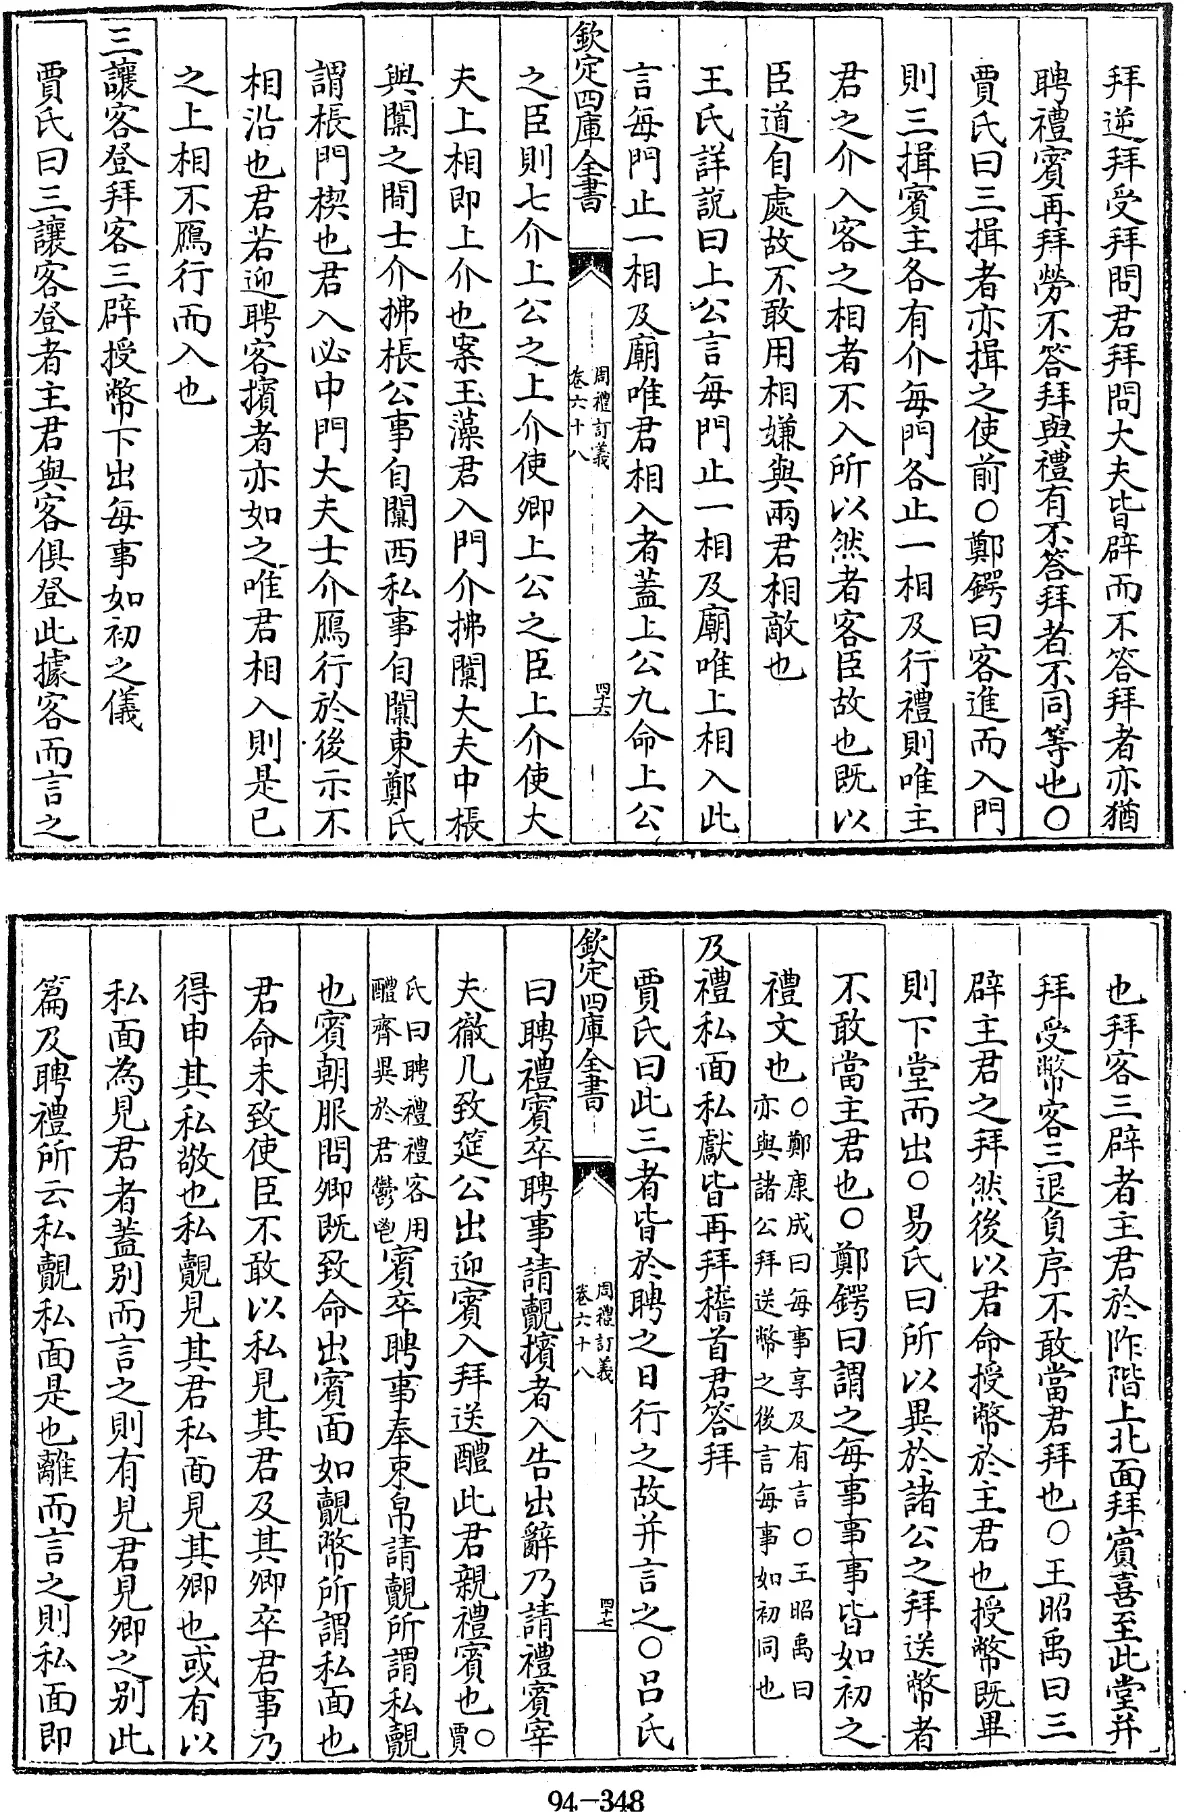 拜逆拜受拜問君拜問大夫皆辟而不答拜者亦猶
聘禮賓再拜勞不答拜與禮有不答拜者不同等也○
賈氏曰三揖者亦揖之使前○鄭鍔曰客進而入門
則三揖賓主各有介每門各止一相及行禮則唯主
君之介入客之相者不入所以然者客臣故也既以
臣道自處故不敢用相嫌與兩君相敵也
王氏詳說曰上公言每門止一相及廟唯上相入此
言每門止一相及廟唯君相入者蓋上公九命上公
欽定四庫全書
周禮訂義
卷六十八
四十六
之臣則七介上公之上介使卿上公之臣上介使大
夫上相即上介也案玉藻君入門介拂闑大夫中棖
與闑之間士介拂棖公事自闑西私事自闑東鄭氏
謂棖門楔也君入必中門大夫士介鴈行於後示不
相沿也君若迎聘客擯者亦如之唯君相入則是已
之上相不鴈行而入也
三讓客登拜客三辟授幣下出每事如初之儀
賈氏曰三讓客登者主君與客俱登此據客而言之
也拜客三辟者主君於阼階上北面拜賓喜至此堂并
拜受幣客三退負序不敢當君拜也○王昭禹曰三
辟主君之拜然後以君命授幣於主君也授幣既畢
則下堂而出○易氏曰所以異於諸公之拜送幣者
不敢當主君也○鄭鍔曰謂之每事事事皆如初之
禮文也○鄭康成曰每事享及有言○王昭禹曰亦與諸公拜送幣之後言每事如初同也
及禮私面私獻皆再拜稽首君答拜
賈氏曰此三者皆於聘之日行之故并言之○呂氏
欽定四庫全書
周禮訂義
卷六十八
四十七
曰聘禮賓卒聘事請覿擯者入告出辭乃請禮賓宰
夫徹几致筵公出迎賓入拜送醴此君親禮賓也○賈
氏曰聘禮禮客用醴齊異於君鬱鬯賓卒聘事奉束帛請覿所謂私覿
也賓朝服問卿既致命出賓面如覿幣所謂私面也
君命未致使臣不敢以私見其君及其卿卒君事乃
得申其私敬也私覿見其君私面見其卿也或有以
私面為見君者蓋別而言之則有見君見卿之別此
篇及聘禮所云私覿私面是也離而言之則私面即
94-348